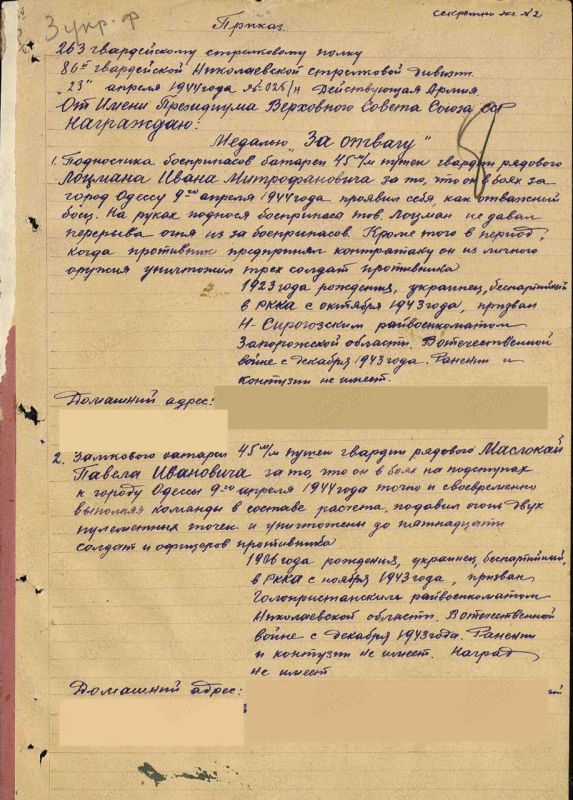 3 укр. ф
секретно экз №2
Приказ.
263 гвардейскому стрелковому полку
86й гвардейской Николаевской стрелковой дивизии.
"23" апреля 1944 года №: 025/н Действующая Армия.
От Имени Президиума Верховного Совета Союза ССР
награждаю:
Медалью "За отвагу"
1. Подносчика боеприпасов батареи 45 м/м пушек гвардии рядового
Лоцмана Ивана Митрофановича за то, что он в боях за
город Одессу 9го апреля 1944 года проявил себя, как отважный
боец. На руках поднося боеприпаса тов. Лоцман не давал
перерыва огня из за боеприпасов. Кроме того в период,
когда противник предпринял контратаку он из личного
оружия уничтожил трех солдат противника
1923 года рождения, украинец, беспартийный
в РККА с октября 1943 года, призван
Н-Сирогозским райвоенкоматом
Запорожской области. В отечественной
войне с декабря 1943 года. Ранении и
контузии не имеет.
Домашний адрес:
2. Замкового батареи 45 м/м пушек гвардии рядового Маслокай
Павела Ивановича за то, что он в боях на подступах
к городу Одессы 9го апреля 1944 года точно и своевременно
выполняя команды в составе расчета, подавил огонь двух
пулеметных точек и уничтожены до пятнадцати
солдат и офицеров противника
1906 года рождения, украинец, беспартийный,
в РККА с ноября 1943 года, призван
Голопристанским райвоенкоматом
Николаевской области. В отечественной
войне с декабря 1943 года. Ранении
и контузии не имеет. Наград
не имеет
Домашний адрес: